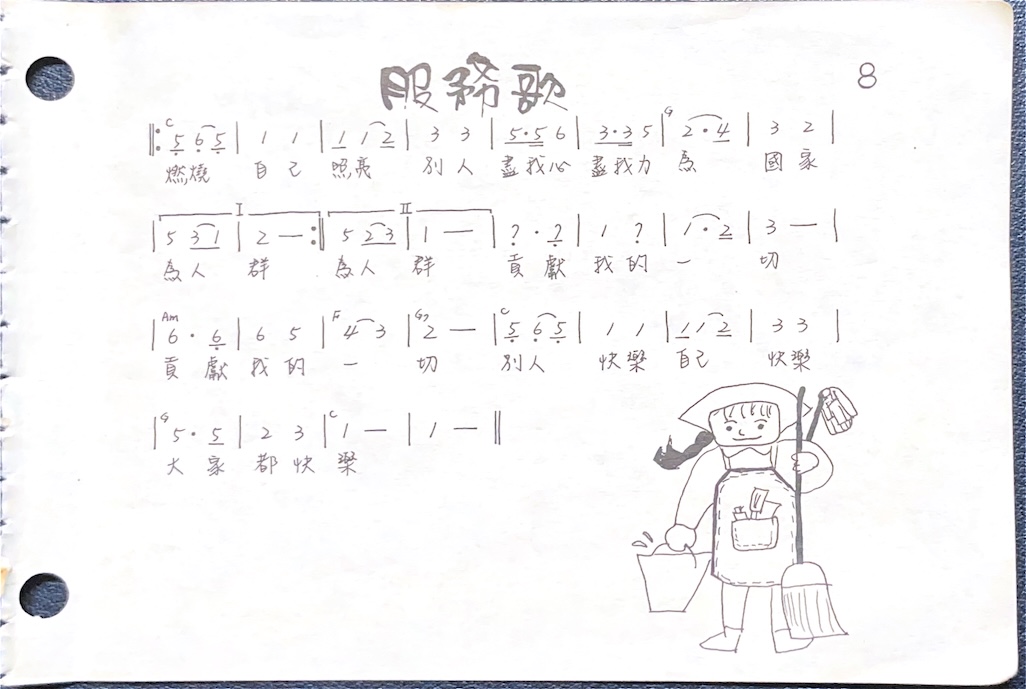 服務歌
8
C G
‖: 5 6 5 | 1 1 | 1 1 2 | 3 3 | 5·5 6 | 3·3 5 | 2·4 | 3 2 |
燃燒 自己 照亮 別人 盡我心 盡我力 為 國家
I II
| 5 3 1 | 2 — :‖ 5 2 3 | 1 — | ? · ? | 1 ? | 1·2 | 3 — |
為人 群 為人 群 貢獻 我的 一 切
Am F G7 C
| 6 · 6 | 6 5 | 4 3 | 2 — | 5 6 5 | 1 1 | 1 1 2 | 3 3 |
貢獻 我的 一 切 別人 快樂 自己 快樂
G C
| 5 · 5 | 2 3 | 1 — | 1 — ‖
大家 都快 樂